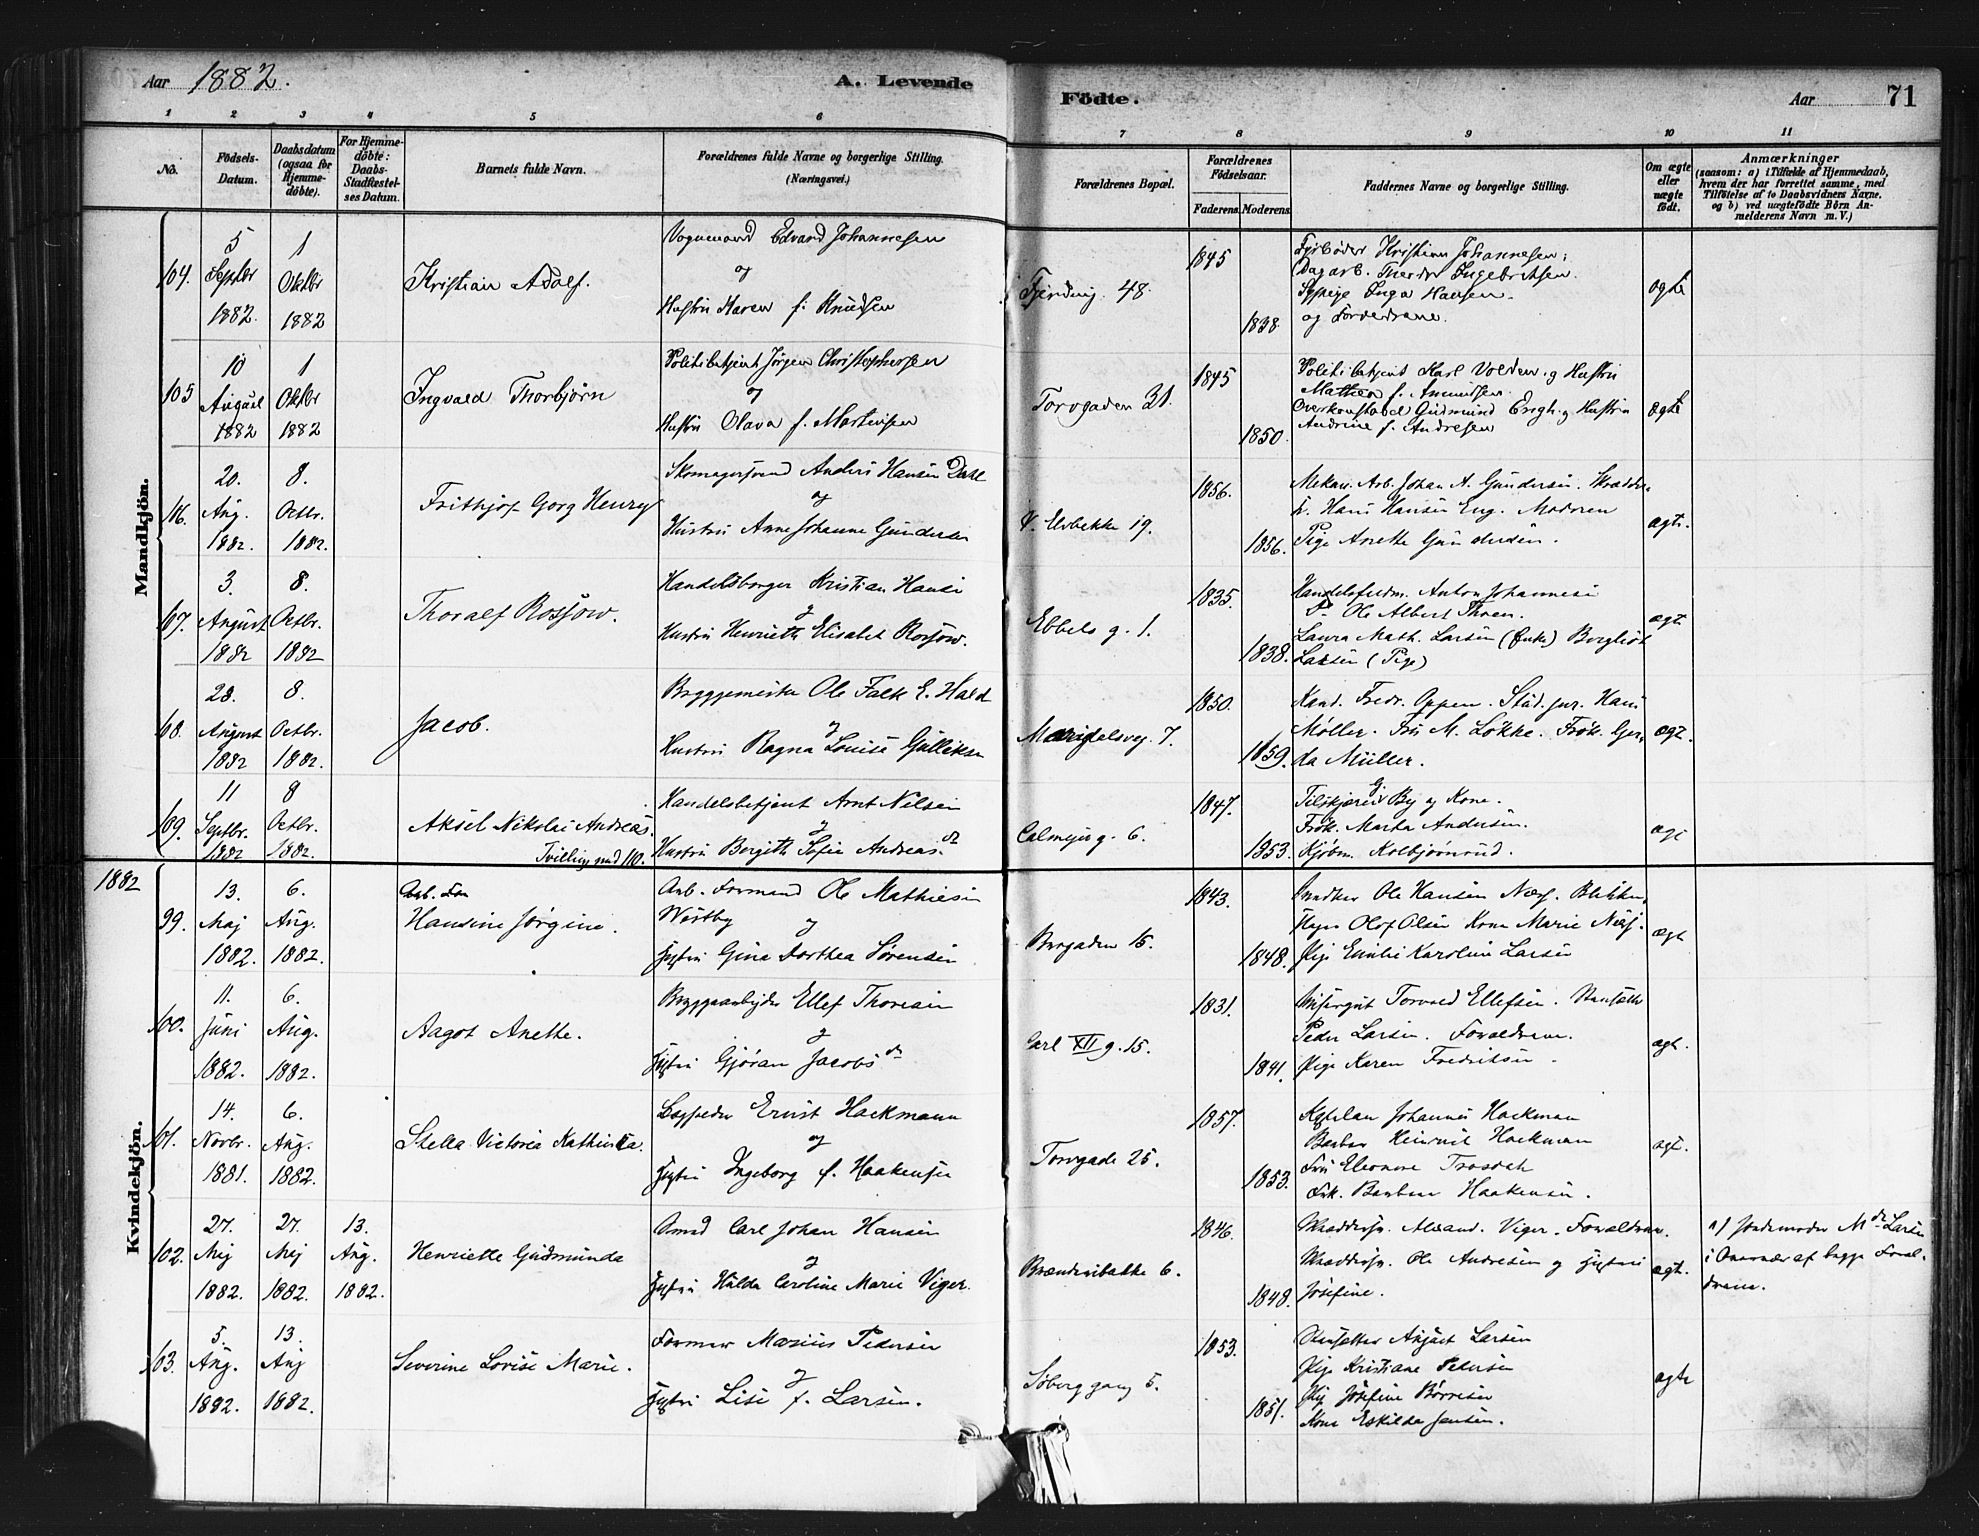 Aar 1882.
A. Levende
Födte.
Aar
71
1 2 3 4 5 6 7 8 9 10 11
No.
Födsels-
Datum.
Daabsdatum
(ogsaa for
Hjemme-
döbte).
For Hjemme-
döbte:
Daabs-
Stadfæstel-
ses Datum.
Barnets fulde Navn.
Forældrenes fulde Navne og borgerlige Stilling.
(Næringsvei.)
Forældrenes Bopæl.
Forældrenes
Födselsaar.
Faderens. Moderens.
Faddernes Navne og borgerlige Stilling.
Om ægte
eller
uægte
födt.
Anmærkninger
(saasom: a) i Tilfælde af Hjemmedaab,
hvem der har forrettet samme, med
Tilföielse af to Daabsvidners Navne,
og b) ved uægtefödte Börn An-
melderens Navn m. V.)
Mandkjön.
104.
5 Septbr 1882.
1 Oktbr 1882
Kristian Adolf.
Vognmand Edvard Johannesen
og
Hustru Maren f. Knudsen
Fjerding. 48.
1845
1838
Fyrbøder Kristian Johannesen;
Dagarb. Theodor Ingebretsen.
Sypige Inga Hansen.
og Forældrene.
ægte
105
10 August 1882
1 Oktbr 1882
Ingvald Thorbjørn
Politibetjent Jørgen Christophersen
og
Hustru Olava f. Mortensen
Torvgaden 31.
1845
1850.
Politibetjent Karl Volden og Hustru
Mathea f. Amundsen.
Overkonstabel Gudmund Engh og Hustru
Andrine f. Andresen
ægte
106.
20. Aug. 1882.
8. Octbr. 1882.
Frithjof Georg Henry
Skomagersvend Anders Hansen Dahl
og
Hustru Anne Johanne Gundersen
V. Elvbakke 19.
1856.
1856.
Mekan. Arb. Johan A. Gundersen. Skrædder
L. Hans Hansen Eng. Moderen
Pige Anette Gundersen.
ægte.
107.
3. August 1882
8. Octbr. 1882
Thoralf Rossow.
Handelsborger Kristian Hansen
og
Hustru Henriette Elisabet Rossow.
Ebbels g. 1.
1835.
1838.
Handelsfuldm. Anton Johannesen
Ole Albert Thoen.
Laura Math. Larsen (Enke) Borghild
Larsen (Pige)
ægte
108.
28. August 1882
8. Octbr. 1882.
Jacob.
Bryggemester Ole Falk E. Hald
og
Hustru Ragna Louise Gulliksen
Maridalsvej. 7.
1850.
1859.
Kand. Fredr. Oppen. Stud. jur. Hans
Møller. Fru M. Løkke. Frøk. Ger-
da Müller.
ægt.
109.
11 Septbr. 1882
8 Octbr. 1882.
Aksel Nikolai Andreas.
Tvilling med 110.
Handelsbetjent Arnt Nilsen
og
Hustru Bergith Sofie Andreasdr
Calmeyerg. 6.
1847.
1853.
By og Kone.
Frøk. Marta Andersen.
Kjøbm. Kolbjørnrud.
ægt
Kvindekjön.
1882
99.
13. Maj 1882.
6. Aug. 1882.
Hansine Jørgine.
Arb. Formand Ole Mathiesen
Westby og
Hustru Gina Dorthea Sørensen
Borgaden 15.
1843.
1848.
Snedker Ole Hansen Næss. Blikken-
slager Olof Olsen Kone Marie Næss.
Pige Emilie Karoline Larsen
ægt
100.
11. Juni 1882.
6. Aug. 1882.
Aagot Anette.
Bryggearbejder Ellef Thoresen
og
Hustru Gjøran Jacobsdr
Carl XII g. 15.
1831.
1841.
Torvald Ellefsen.
Peder Larsen. Forældrene.
Pige Karen Fredriksen.
ægt.
101.
14. Novbr. 1881.
6. Aug. 1882.
Stella Victoria Kathinka.
Ernst Hackmann
og
Hustru Ingeborg f. Haakensen
Torvgade 25.
1857.
1853.
Johannes Hackman
Barber Heinrich Hackman
Fru Eleonore Trosdahl
Frk. Barbra Haakensen.
ægt.
102.
27. Mej 1882.
27. Mej 1882.
13. Aug. 1882.
Henriette Gudmunda
Smed Carl Johan Hansen
og
Hustru Hulda Caroline Marie Viger.
Brænneribakke 6.
1846.
1848.
Skræddersv. Alexand. Viger. Forældrene.
Skræddersv. Ole Andresen og Hustru
Josefine.
ægt.
a) Jordemoder Mdm Larsen
i Overvær af begge Foræl-
drene.
103.
5. Aug. 1882.
13. Aug 1882.
Severine Lovise Marie.
Former Marius Pedersen
og
Hustru Lise f. Larsen.
Søberggang 5.
1853.
1851.
August Larsen
Pige Kristiane Pedersen
Pig Josefine Børresen
Kone Eskilda Jensen.
ægte